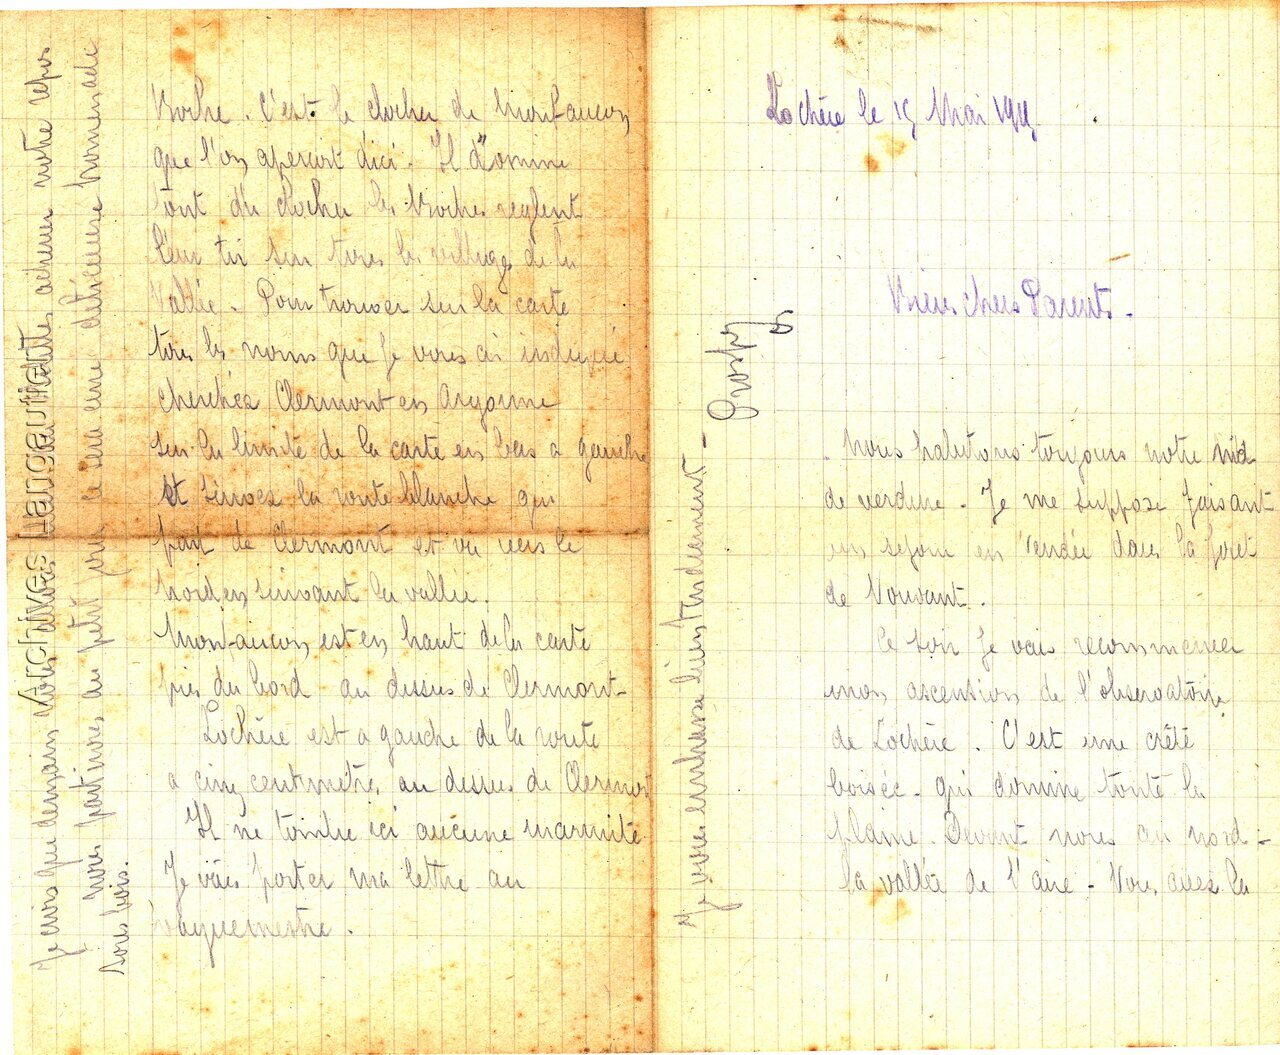 Lochère le 15 Mai 1915.
Biens chers Parents.
Nous habitons toujours notre nid
de verdure. Je me suppose faisant
un sejour en Vendée dans la foret
de Vouvant.
Ce soir Je vais recommencer
mon ascention de l'observatoire
de Lochère. C'est une crêté
boisée. qui domine toute la
plaine. Devant nous au nord-
la vallée de l'aire - Vous avez la
Boche. C'est le clocher de Monfaucon
que l'on apercoit d'ici. Il domine
tout du clocher les Boches reglent
leur tir sur tous les villages de la
Vallée. Pour trouver sur la carte
tous les noms que Je vous ai indiqué
cherchés Clermont en Argonne
sur la limite de la carte en bas a gauche
et suivez la route blanche qui
part de Clermont et va vers le
nord en suivant la vallée.
Monfaucon est en haut de la carte
près du bord au dessus de Clermont-
Lochère est a gauche de la route
a cinq centimetres au dessus de Clermont
Il ne tombe ici aucune marmite
Je vais porter ma lettre au
vaguemestre.
Je crois que demain nous allons achever notre repos
nous partirons au petit jour ce sera une délicieuse promenade
sous bois.
Je vous embrasse bien tendrement -
Archives